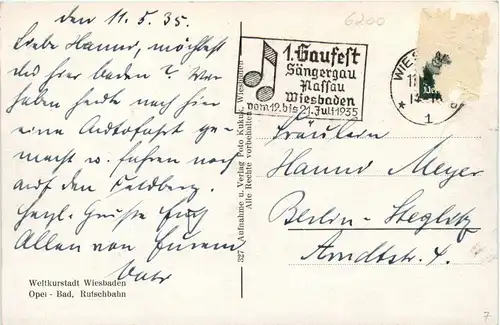 den 11. 5. 35.
Liebe Hanni, möchtest
Du hier baden? Wir
haben heute noch hier
eine Autofahrt ge-
macht u. fuhren noch
auf den Feldberg.
Herzl. Grüße Euch
Allen von Eurem
Vater
Weltkurstadt Wiesbaden
Opel - Bad, Rutschbahn
327 Aufnahme u. Verlag Foto Kukuk, Wiesbaden
Alle Rechte vorbehalten
6200
1. Gaufest
Sängergau
Nassau
Wiesbaden
vom 19. bis 21. Juli 1935
WIES
11
1
Fräulein
Hanni Meyer
Berlin-Steglitz
Arndtstr. 4.
7